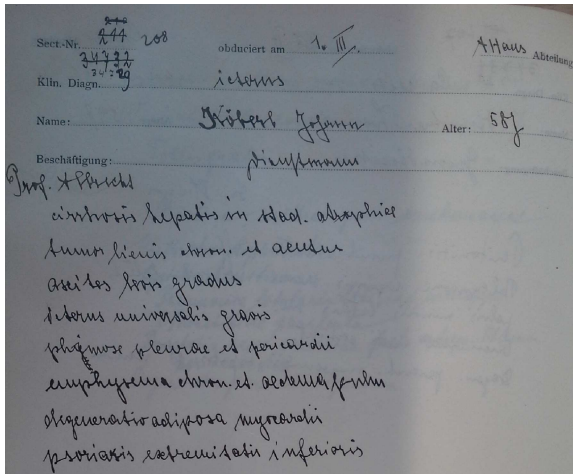 244
Sect.-Nr. 244 208 obduciert am 1. III. A Haus Abteilung
34732
Klin. Diagn. icterus
Name: Köberl Johann Alter: 58J
Beschäftigung: Dienstmann
Prof. Albrecht
cirrhosis hepatis in stad. atrophiae
tumor lienis chron. et acutus
ascites levis gradus
icterus universalis gravis
pleurae et pericardii
emphysema chron. et oedema pulm
degeneratio adiposa myocardii
psoriasis extremitatis inferioris